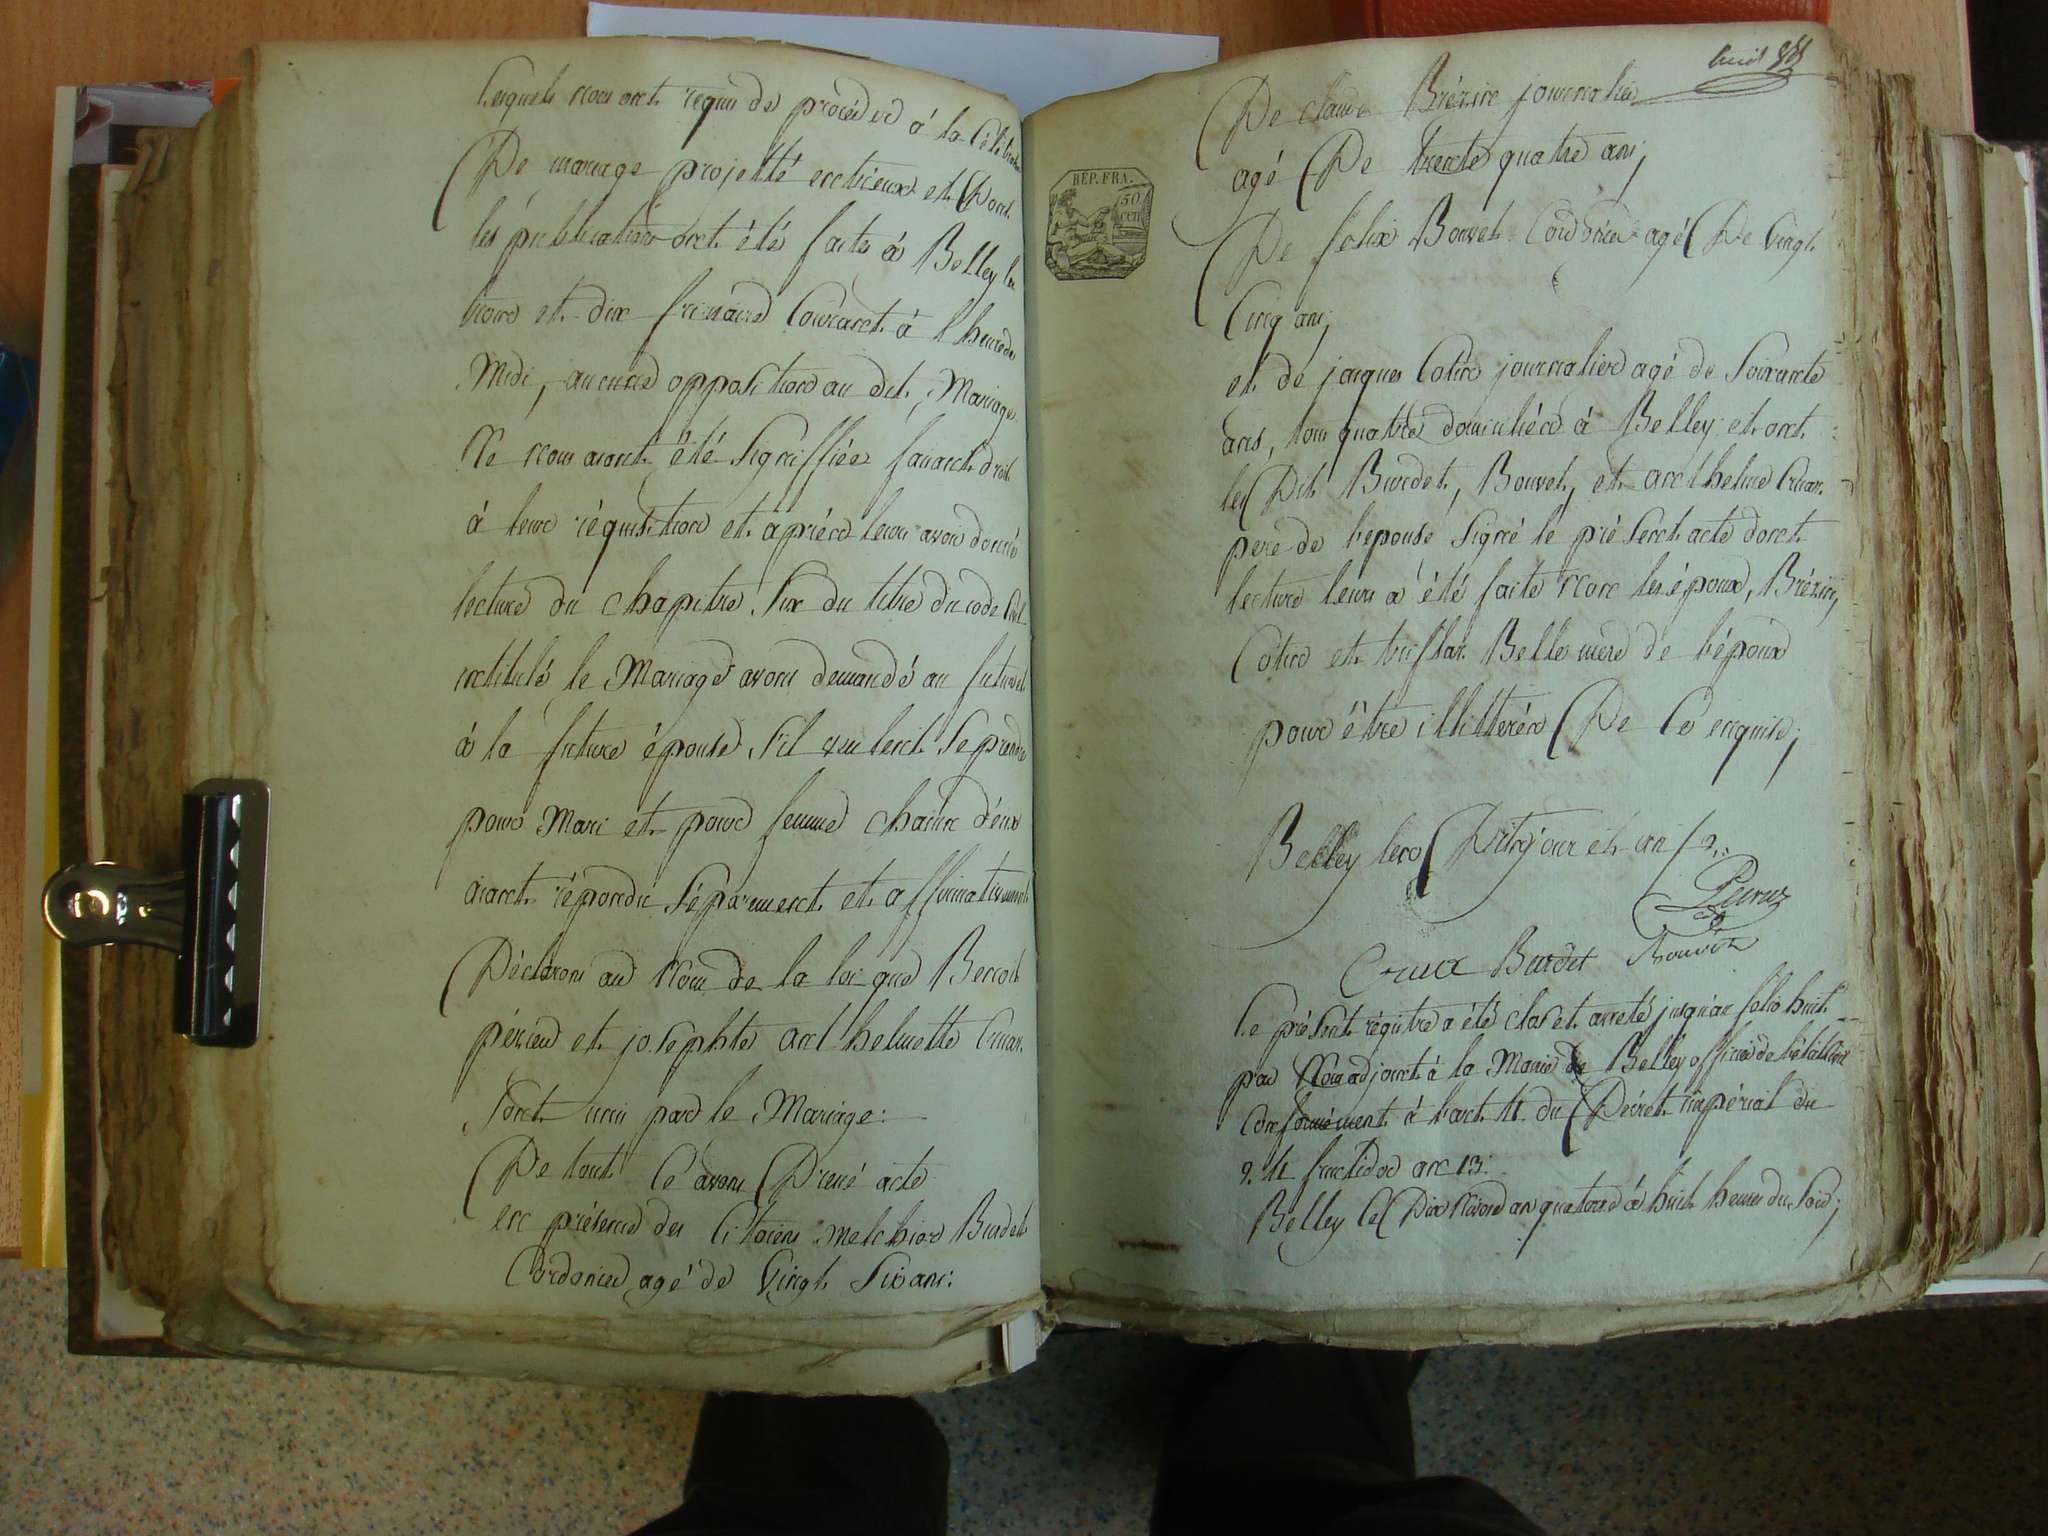 Lesquels nous ont requis de procéder à la Célébration
De mariage projetté entreux et Dont
les publications ont été faites à Belley les
trois et dix frimaire Courant à l'heure de
Midi, aucune opposition au dit Mariage
Ne nous aiant été Signiffiée faisant droit
à leur réquisition et après leur avoir donné
lecture du chapitre Six du titre du code Civil
intitulé le Mariage avons demandé au futur et
à la future épouse S'il veulent Se prendre
pour Mari et pour femme chacun d'eux
aiant répondu Séparement et affirmativement
Déclarons au Nom de la loi que Benoit
périer et josephte anthelmette Cruax
Sont unis par le Mariage:
De tout Ce avons Dressé acte
en présence des Citoiens melchior Burdet
Cordonier agé de Vingt Six ans:
huit
De claude Brézin journalier
agé De trente quatre ans,
REP. FRA.
50
cen
De felix Bouvet Cordonier agé De Vingt
Cinq ans,
et de jacques Cotin journalier agé de Soixante
ans, tous quatre domiciliés à Belley et ont
les Dits Burdet, Bouvet, et anthelme Cruax
pere de l'epouse Signé le présent acte dont
lecture leurs a été faite Non les époux, Brézin,
Cotin et Belle mere de l'époux
pour être illitterés De Ce enquis;
Belley les Dits jour et an
Cruax Burdet Bouvet
Le présent régistre a été clos et arreté jusqu'au folio huit
par Nous adjoint à la Mairie de Belley officier de l'état Civil
Conformément à l'art. 11. du Décret impérial du
fructidor an 13:
Belley le Dix Nivose an quatorze à huit heures du Soir;